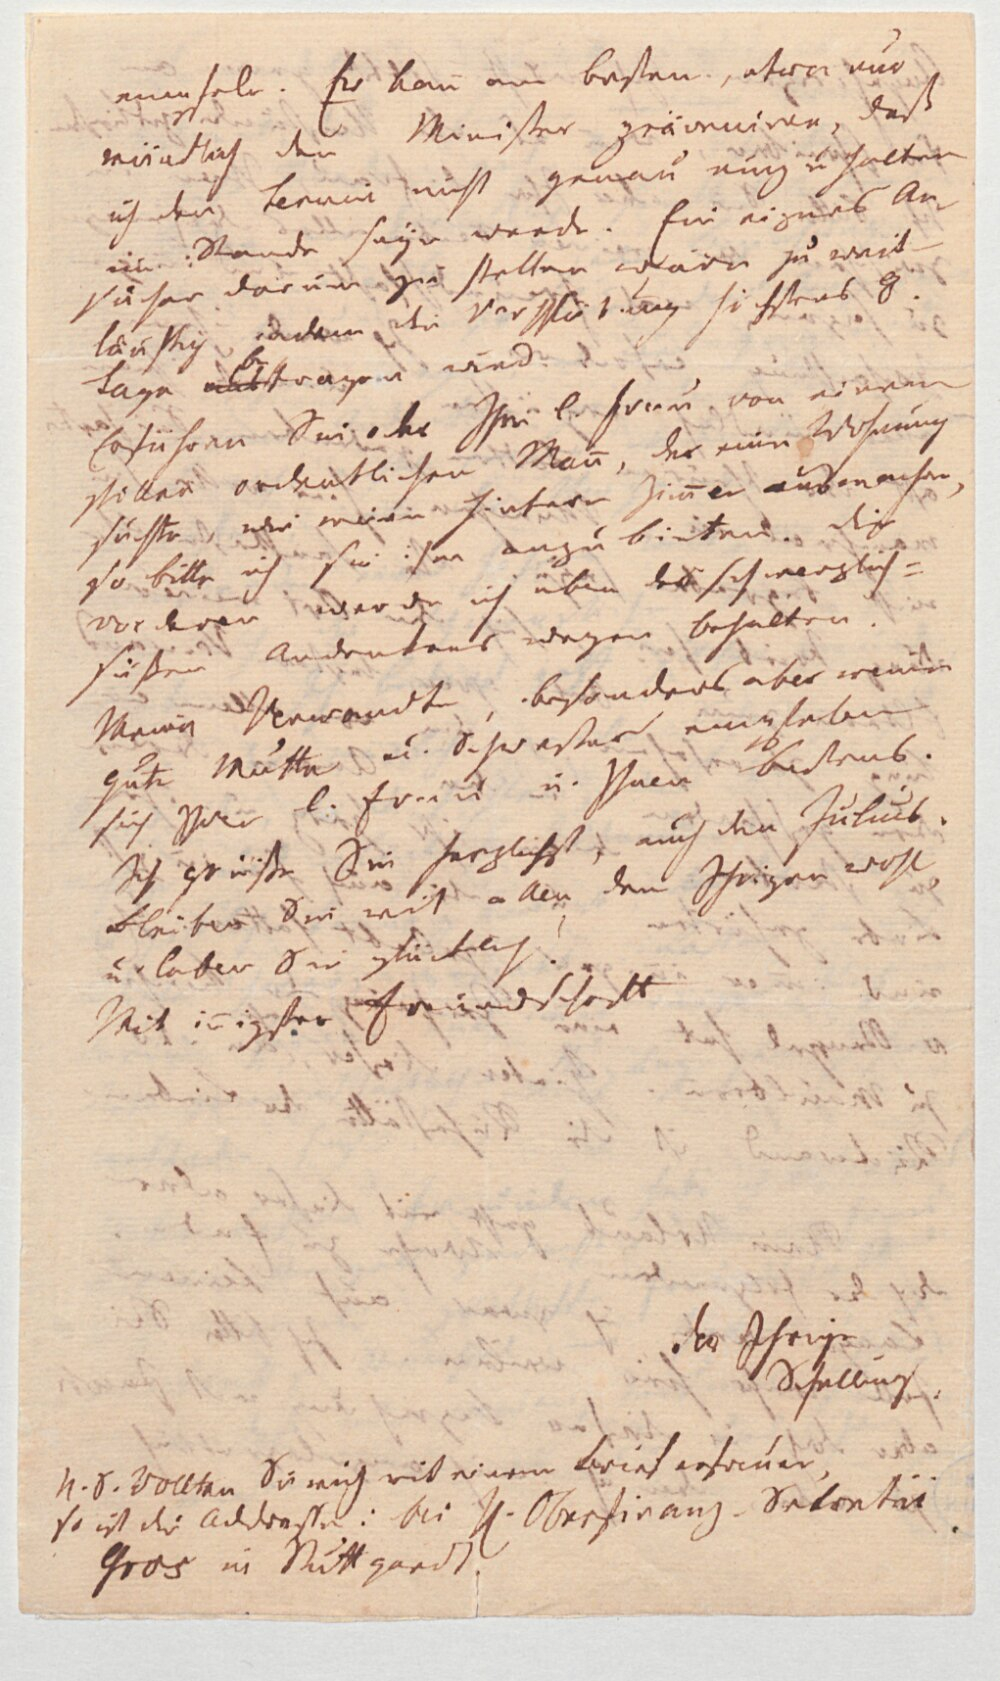 empfehle. Er kann am besten, etwa nur
mündlich den Minister präveniren, daß
ich den Termin nicht genau einzuhalten
im Stande seyn werde. Ein eignes An-
suchen darum zu stellen wäre zu weit-
läufig, indem die Verspätung höchstens 8.
Tage betragen wird.
Erführen Sie oder Ihre l. Frau von einem
stillen ordentlichen Mann, der eine Wohnung
suchte, wie meine hintern Zimmer ausmachen,
so bitte ich sie ihm anzubieten. Die
vorderen werde ich eben des schmerzlich=
süßen Andenkens wegen behalten.
Meine Verwandte, besonders aber meine
gute Mutter u. Schwester empfehlen
sich Ihrer l. Frau u. Ihnen bestens.
Ich grüße Sie herzlichst, auch den Julius.
Bleiben Sie mit allen den Ihrigen wohl
u. leben Sie glücklich!
Mit innigster Freundschaft
der Ihrige
Schelling.
N. S. Wollten Sie mich mit einem Brief erfreuen,
so ist die Addresse: bei H. Oberfinanz-Sekretär
Gros in Stuttgardt.